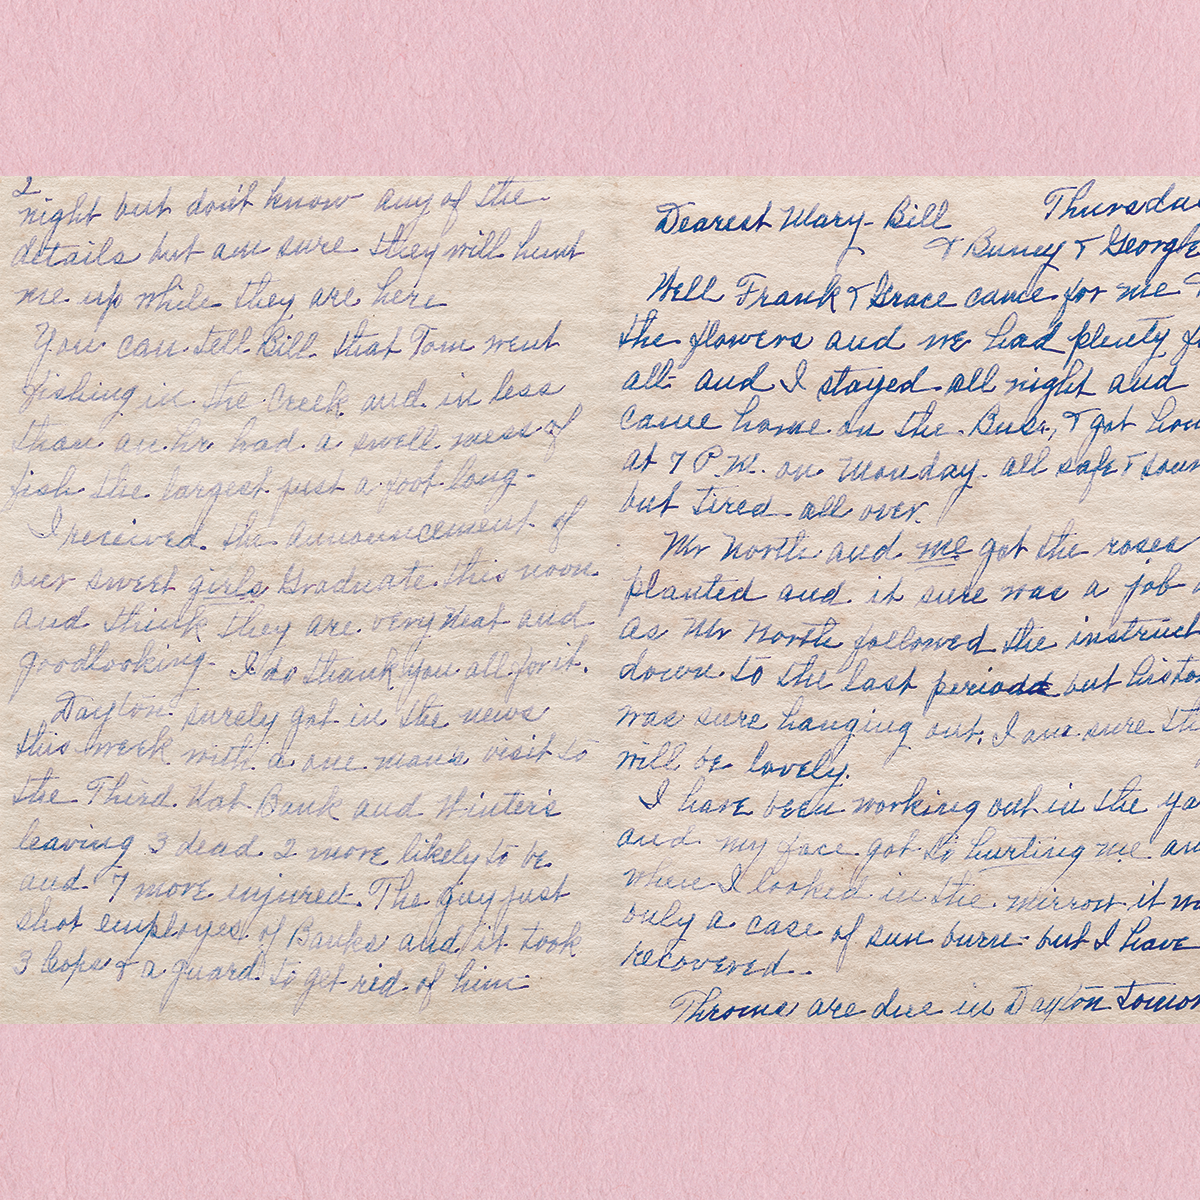 Thursda
Dearest Mary - Bill
& Buney & Georgie
Well Frank & Grace came for me &
the flowers and we had plenty f
all - and I stayed all night and
came home on the Bus, & got hom
at 7 P.M. on Monday - all safe & soun
but tired all over.
Mr North and me got the roses
planted and it sure was a job
as Mr North followed the instruct
down to the last period but his ton
was sure hanging out, I am sure the
will be lovely.
I have been working out in the ya
and my face got to hurting me an
when I looked in the mirror it w
only a case of sun burn - but I have
recovered.
Throms are due in Dayton tomor
2
night but don't know any of the
details but am sure they will hunt
me up while they are here
You can tell Bill that Tom went
fishing in the Creek and in less
than an hr had a swell mess of
fish the largest just a foot long -
I received the announcement of
our sweet girls Graduate this noon
and think they are very neat and
goodlooking - I do thank you all for it.
Dayton surely got in the news
this week with a one mans visit to
the Third Nat Bank and Winters
leaving 3 dead 2 more likely to be
and 7 more injured. The guy just
shot employes of Banks and it took
3 Cops & a guard to get rid of him